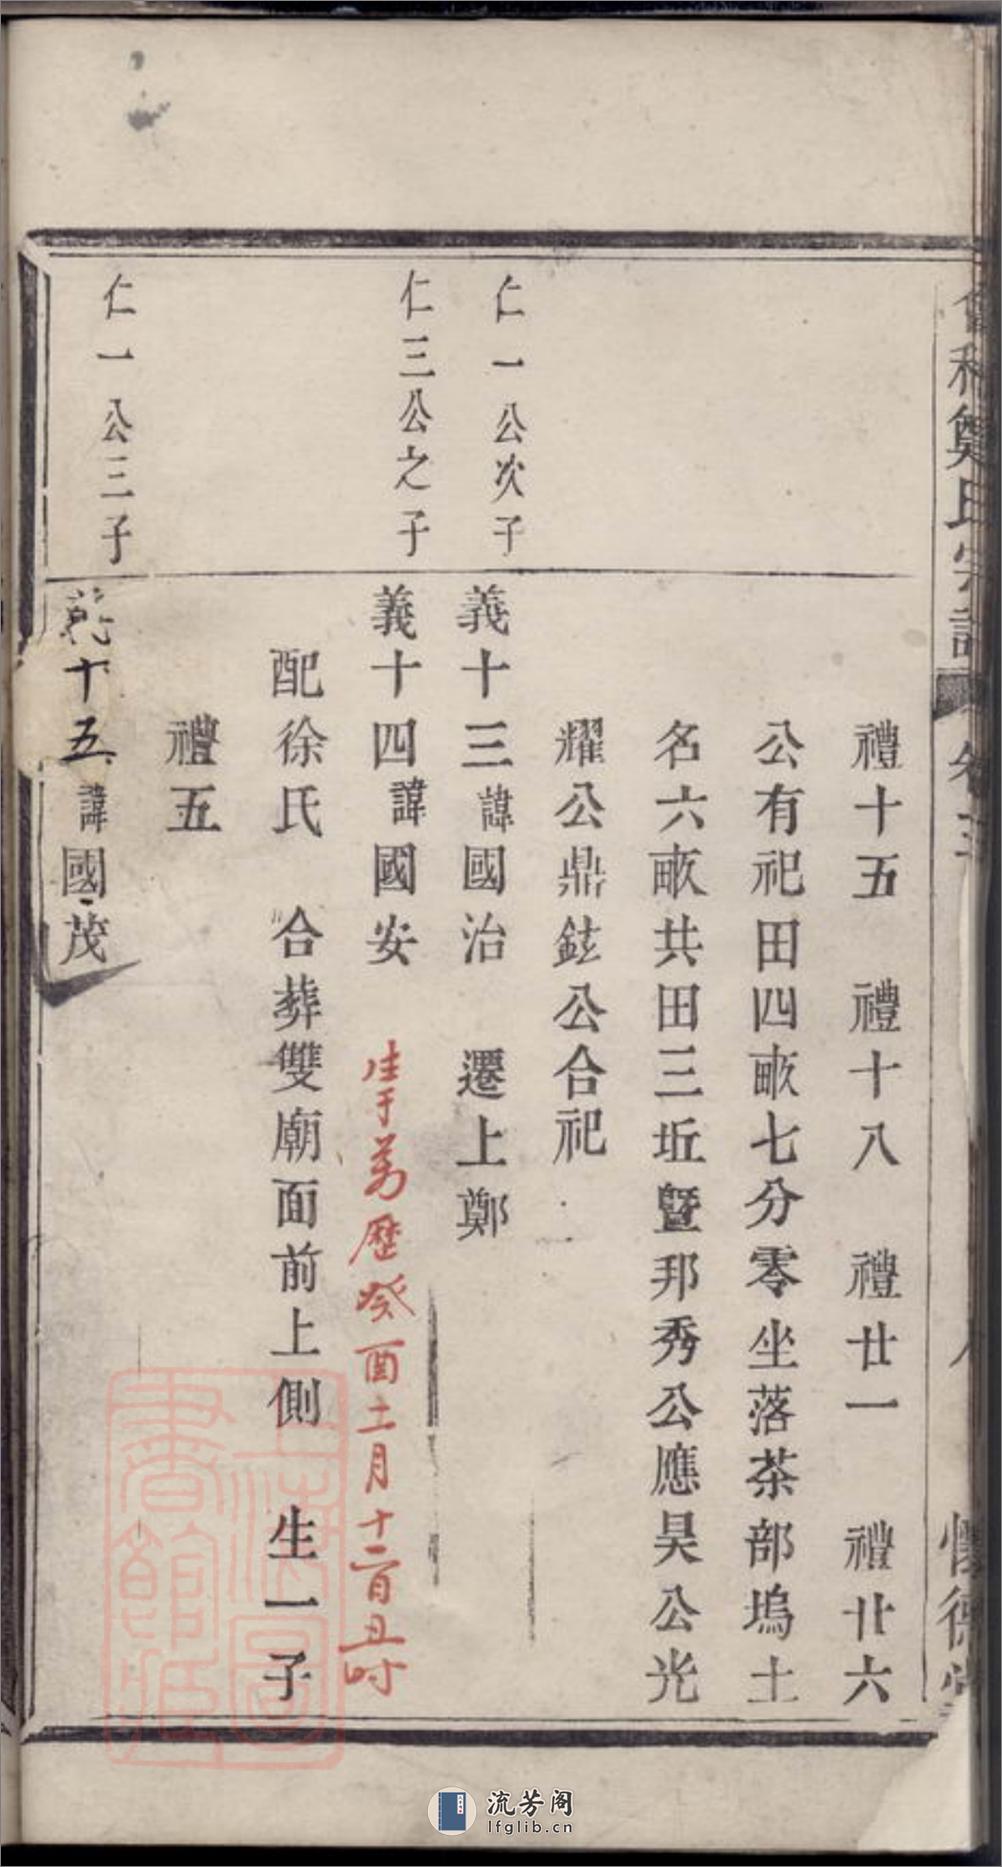 禮十五　禮十八　禮廿一　禮廿六
公有祀田四畝七分零坐落茶部塢土
名六畝共田三坵暨邦秀公應昊公光
耀公鼎鉉公合祀
仁一公次子
義十三諱國治　遷上鄭
仁三公之子
義十四諱國安　生于萬歷癸酉十二月十二日丑时
配徐氏　合葬雙廟面前上側　生一子
禮五
仁一公三子
十五諱國茂
鄭氏宗譜
懷德堂
上海圖書館藏
流芳阁
lfglib.cn